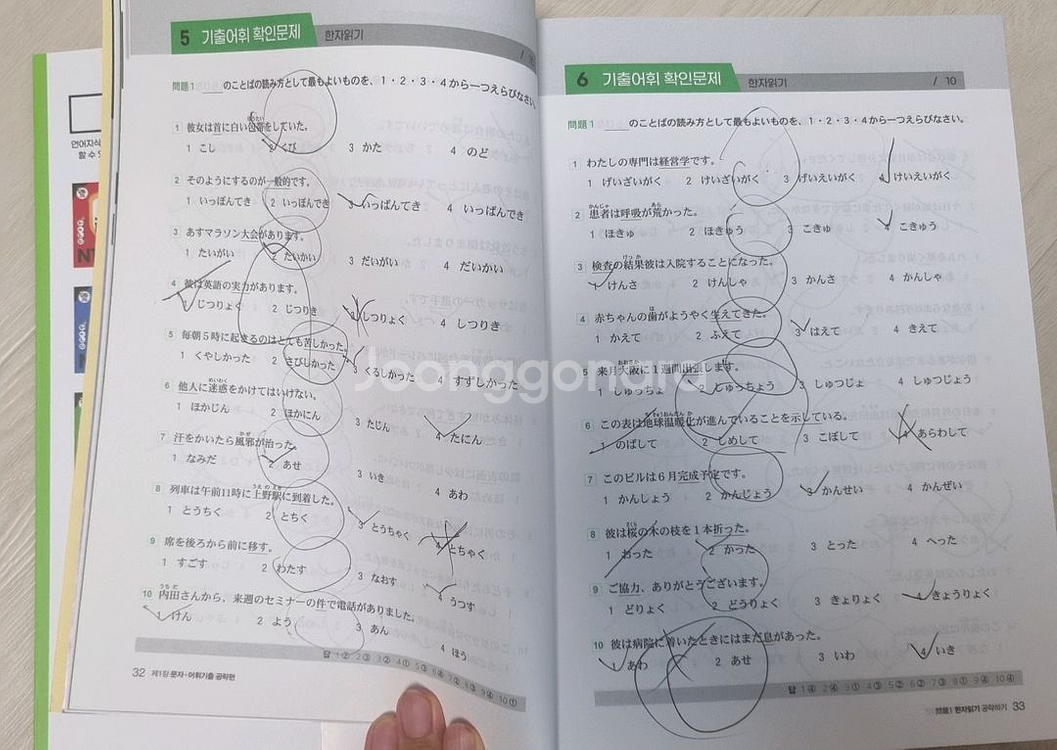 5 기출어휘 확인문제 한자읽기
問題1 ＿＿のことばの読み方として最もよいものを、1・2・3・4から一つえらびなさい。
1 彼女は首に白い包帯をしていた。
1 こし 2 くび 3 かた 4 のど
2 そのようにするのが一般的です。
1 いっぱんてき 2 いっぽんでき 3 いっぱんてき 4 いっぱんでき
3 あすマラソン大会があります。
1 たいがい 2 たいかい 3 だいがい 4 だいかい
4 彼は英語の実力があります。
1 じつりょく 2 じつりき 3 しつりょく 4 しつりき
5 毎朝5時に起きるのはとても苦しかった。
1 くやしかった 2 さびしかった 3 くるしかった 4 すずしかった
6 他人に迷惑をかけてはいけない。
めいわく
1 ほかじん 2 ほかにん 3 たじん 4 たにん
7 汗をかいたら風邪が治った。
1 なみだ 2 あせ 3 いき 4 あわ
8 列車は午前11時に上野駅に到着した。
1 とうちく 2 とちく 3 とうちゃく 4 とちゃく
9 席を後ろから前に移す。
1 すごす 2 わたす 3 なおす 4 うつす
うちだ
10 内田さんから、来週のセミナーの件で電話がありました。
1 けん 2 よう 3 あん 4 ほう
32 제1장 문자·어휘기출 공략편
6 기출어휘 확인문제 한자읽기 / 10
問題1 ＿＿のことばの読み方として最もよいものを、1・2・3・4から一つえらびなさい。
1 わたしの専門は経営学です。
1 げいざいがく 2 けいざいがく 3 げいえいがく 4 けいえいがく
かんじゃ あら
2 患者は呼吸が荒かった。
1 ほきゅ 2 ほきゅう 3 こきゅ 4 こきゅう
けっか
3 検査の結果彼は入院することになった。
1 けんさ 2 けんしゃ 3 かんさ 4 かんしゃ
は
4 赤ちゃんの歯がようやく生えてきた。
1 かえて 2 ふえて 3 はえて 4 きえて
おおさか
5 来月大阪に1週間出張します。
1 しゅっちょ 2 しゅっちょう 3 しゅつじょ 4 しゅつじょう
ちきゅうおんだんか
6 この表は地球温暖化が進んでいることを示している。
1 のばして 2 しめして 3 こぼして 4 あらわして
7 このビルは6月完成予定です。
1 かんしょう 2 かんじょう 3 かんせい 4 かんぜい
さくら
8 彼は桜の木の枝を1本折った。
1 おった 2 かった 3 とった 4 へった
9 ご協力、ありがとうございます。
1 どりょく 2 どうりょく 3 きょりょく 4 きょうりょく
10 彼は病院に着いたときにはまだ息があった。
1 あわ 2 あせ 3 いわ 4 いき
答 1④ 2④ 3① 4③ 5② 6② 7③ 8① 9④ 10④
問題1 한자읽기 공략하기 33
Joonggonara